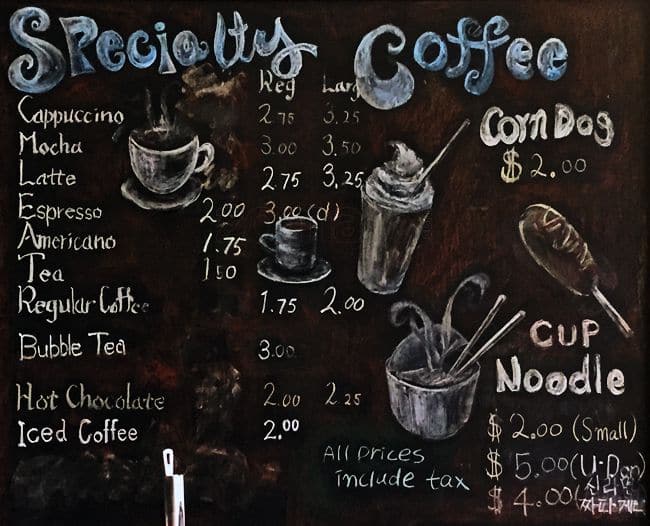 Specialty Coffee
Reg Larg
Cappuccino 2.75 3.25
Mocha 3.00 3.50
Latte 2.75 3.25
Espresso 2.00 3.00(d)
Americano 1.75
Tea 1.50
Regular Coffee 1.75 2.00
Bubble Tea 3.00
Hot Chocolate 2.00 2.25
Iced Coffee 2.00
All prices
include tax
Corn Dog
$2.00
CUP
Noodle
$2.00 (Small)
$5.00 (U-Don)
$4.00